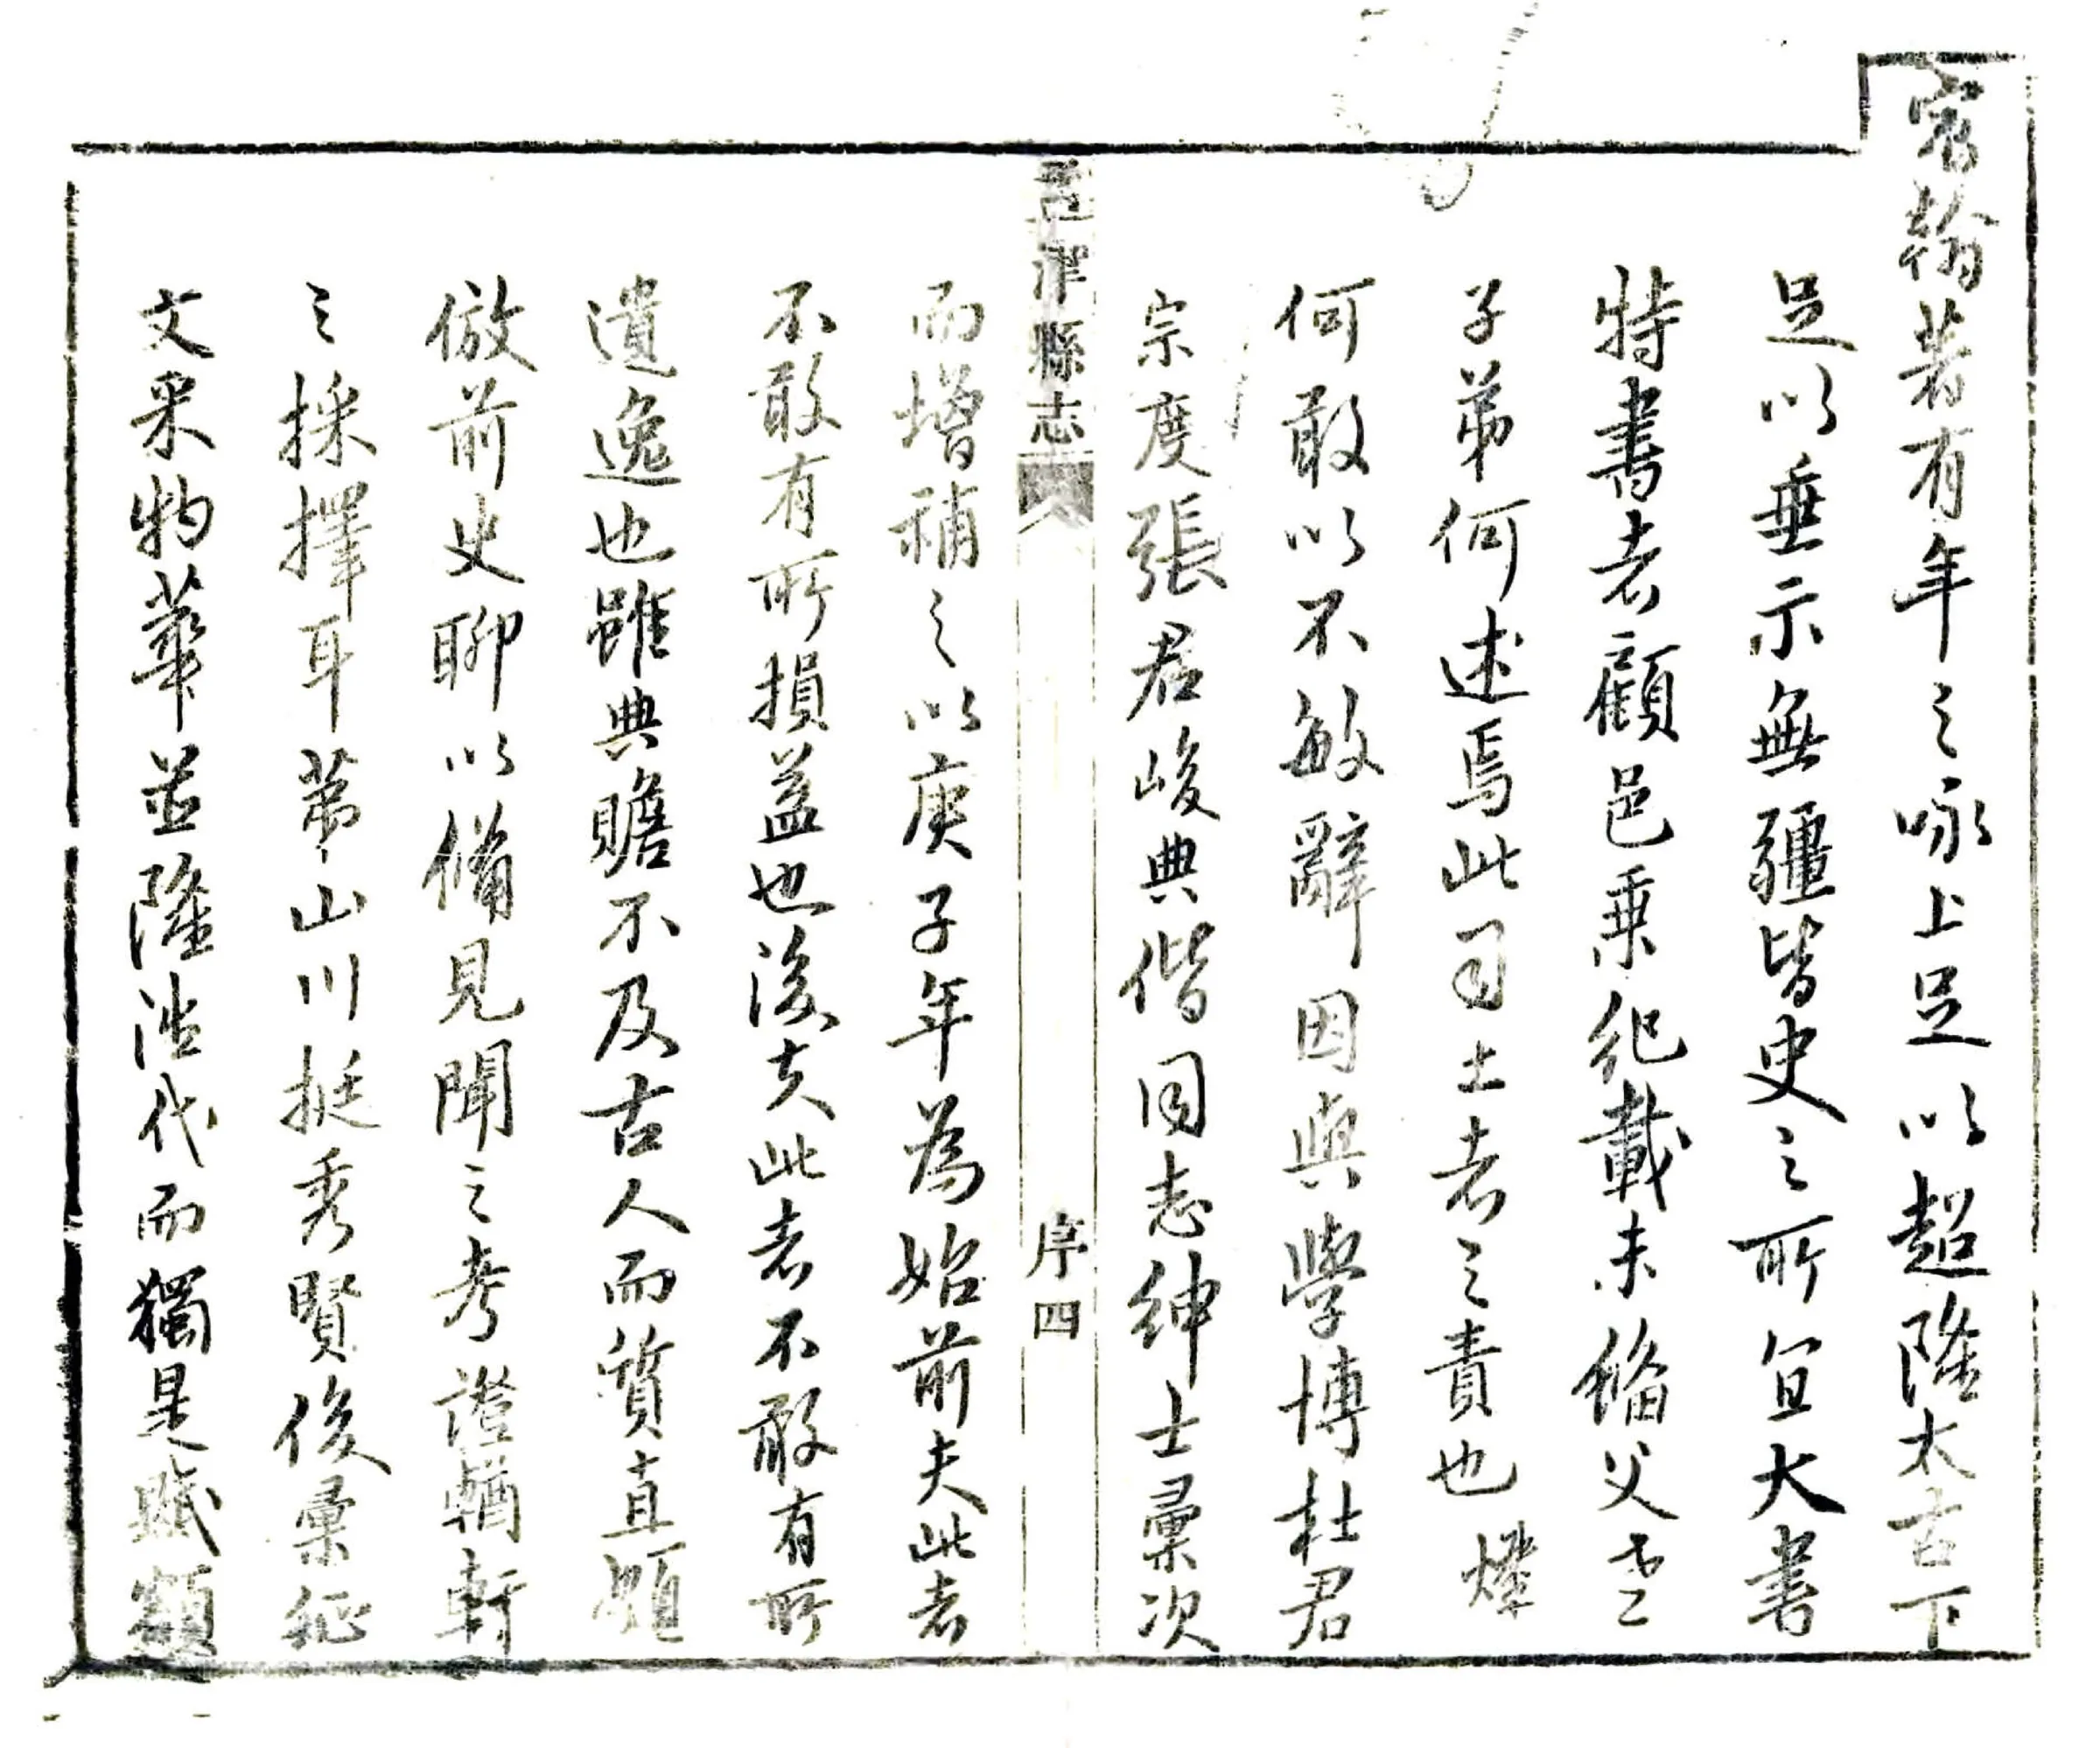 宸翰著有年之咏上足以超隆太古下
足以垂示無疆皆史之所宜大書
特書者顧邑乗紀載未備父老
子弟何述焉此司土者之責也燦
何敢以不敏辭因與學博杜君
宗度張君峻典偕同志紳士彙次
縣志
序四
而增補之以庚子年為始前夫此者
不敢有所損益也後夫此者不敢有所
遺逸也雖典贍不及古人而質直頗
倣前史聊以備見聞之考證輶軒
之採擇耳第山川挺秀賢俊彙征
文采物華並隆往代而獨是賦額